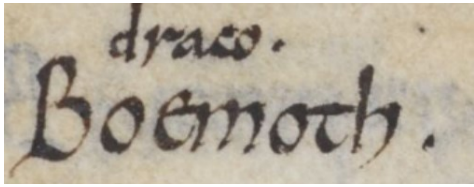 draco.
Boemoth.